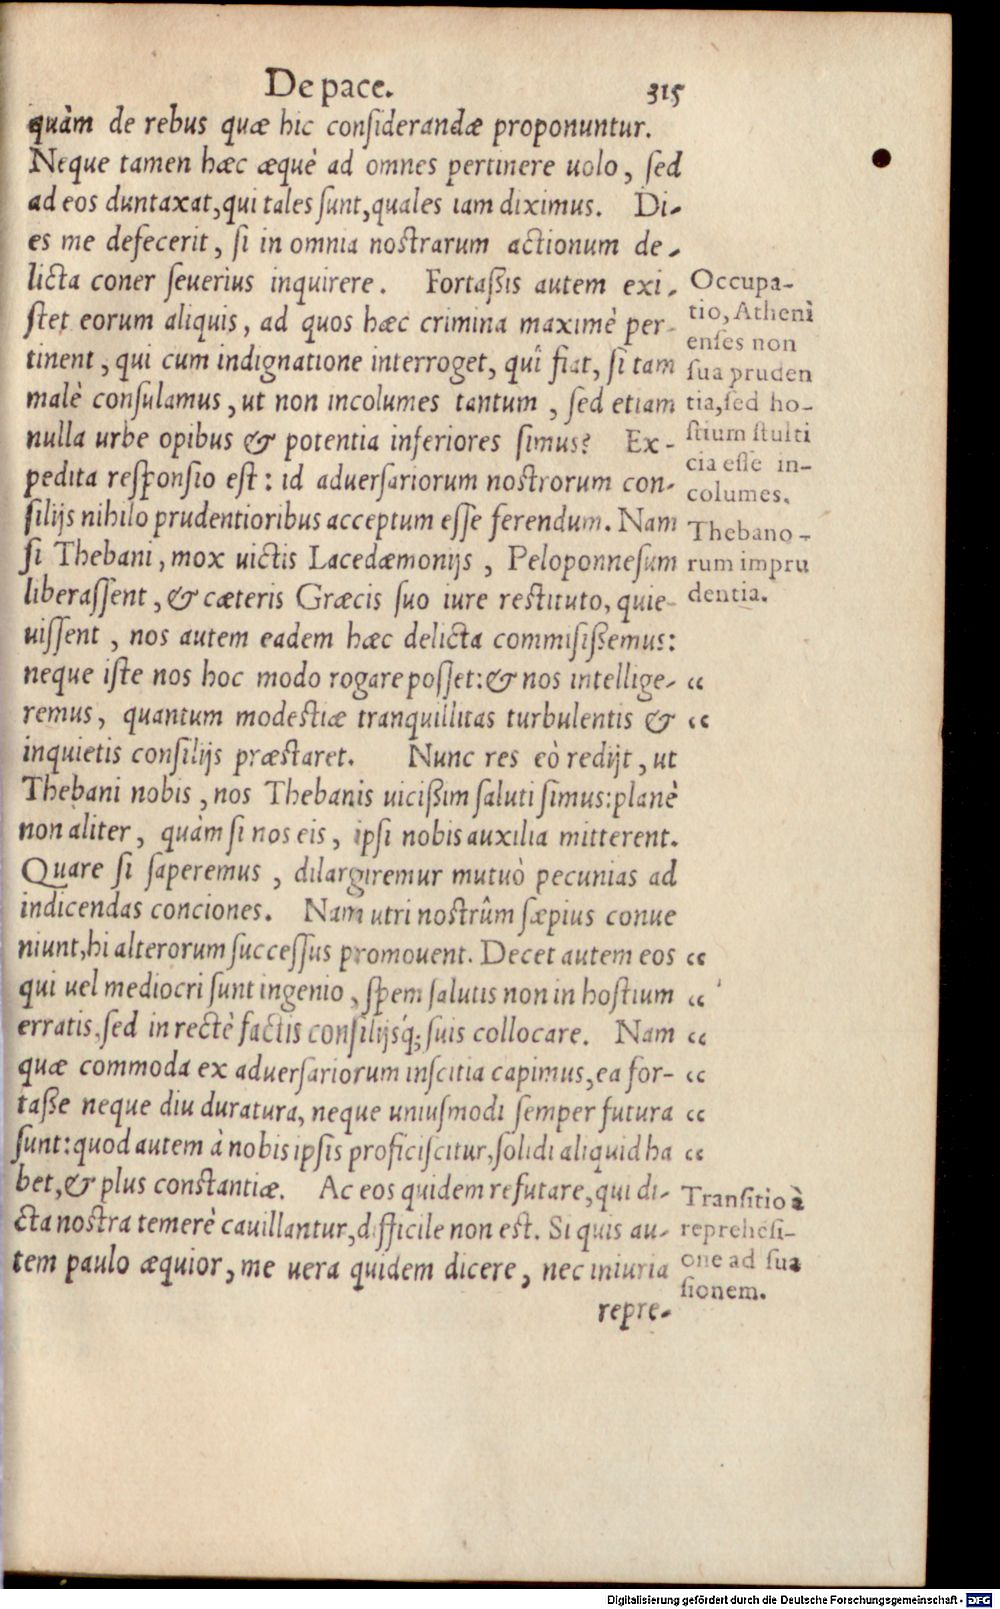 De pace. 315
quàm de rebus quæ hic conſiderandæ proponuntur.
Neque tamen hæc æquè ad omnes pertinere uolo, ſed
ad eos duntaxat, qui tales ſunt, quales iam diximus. Di-
es me defecerit, ſi in omnia noſtrarum actionum de-
licta coner ſeuerius inquirere. Fortaßis autem exi-
ſtet eorum aliquis, ad quos hæc crimina maximè per-
tinent, qui cum indignatione interroget, quî fiat, ſi tam
malè conſulamus, ut non incolumes tantum, ſed etiam
nulla urbe opibus & potentia inferiores ſimus? Ex-
pedita reſponſio eſt: id aduerſariorum noſtrorum con-
ſilijs nihilo prudentioribus acceptum eſſe ferendum. Nam
ſi Thebani, mox uictis Lacedæmonijs, Peloponneſum
liberaſſent, & cæteris Græcis ſuo iure reſtituto, quie-
uiſſent, nos autem eadem hæc delicta commiſißemus:
neque iſte nos hoc modo rogare poſſet: & nos intellige-
remus, quantum modeſtiæ tranquillitas turbulentis &
inquietis conſilijs præſtaret. Nunc res eò redijt, ut
Thebani nobis, nos Thebanis uicißim ſaluti ſimus: planè
non aliter, quàm ſi nos eis, ipſi nobis auxilia mitterent.
Quare ſi ſaperemus, dilargiremur mutuò pecunias ad
indicendas conciones. Nam utri noſtrûm ſæpius conue
niunt, hi alterorum ſucceſſus promouent. Decet autem eos
qui uel mediocri ſunt ingenio, ſpem ſalutis non in hoſtium
erratis, ſed in rectè factis conſilijsq́; ſuis collocare. Nam
quæ commoda ex aduerſariorum inſcitia capimus, ea for-
taße neque diu duratura, neque uniuſmodi ſemper futura
ſunt: quod autem à nobis ipſis proficiſcitur, ſolidi aliquid ha
bet, & plus conſtantiæ. Ac eos quidem refutare, qui di-
cta noſtra temerè cauillantur, difficile non eſt. Si quis au-
tem paulo æquior, me uera quidem dicere, nec iniuria
repre-
Occupa-
tio, Atheni
enſes non
ſua pruden
tia, ſed ho-
ſtium ſtulti
cia eſſe in-
columes.
Thebano-
rum impru
dentia.
“
“
“
“
“
“
“
“
Tranſitio à
reprehēſi-
one ad ſua
ſionem.
Digitalisierung gefördert durch die Deutsche Forschungsgemeinschaft - DFG